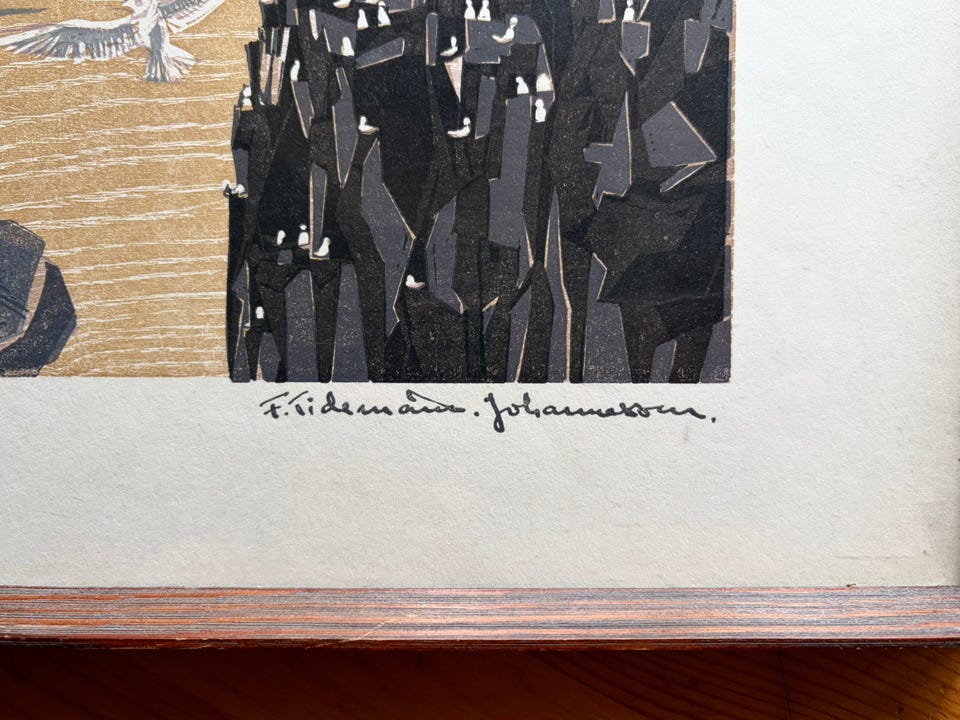 F. Tidemand. Johannesen.